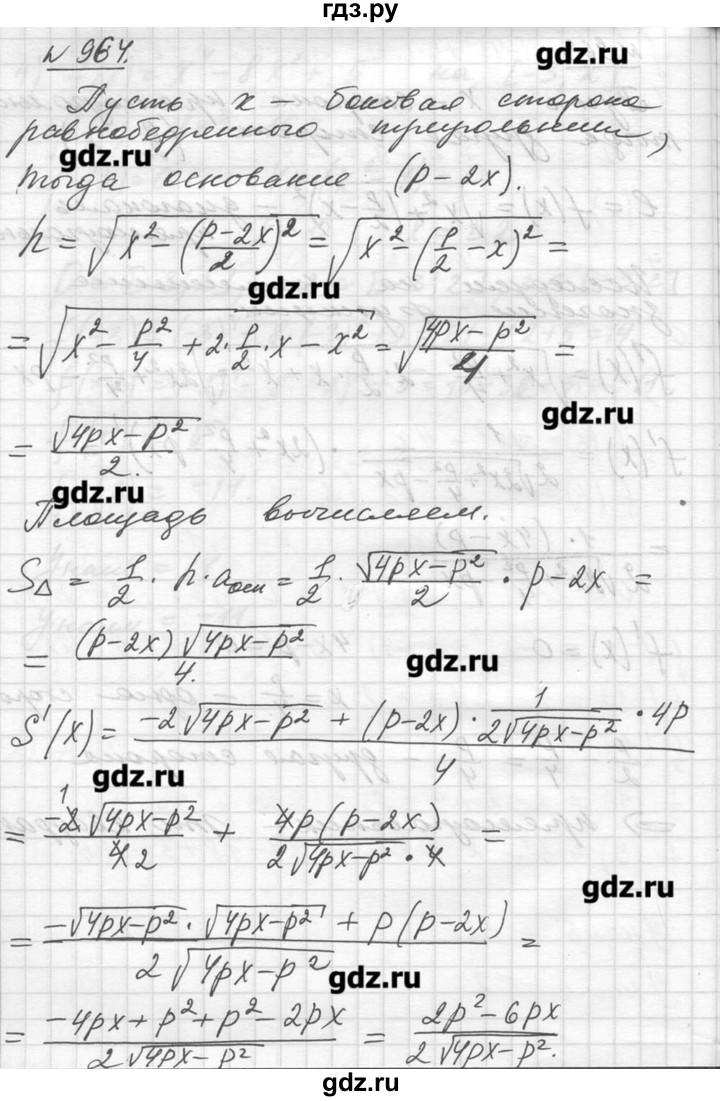 гдз.ру
N 964.
gdz.ru
Пусть x – боковая сторона
равнобедренного треугольника,
gdz.ru
тогда основание (p – 2x).
h = √(x² – ((p–2x)/2)²) = √(x² – (p/2 – x)²) =
gdz.ru
= √(x² – p²/4 + 2·p/2·x – x²) = √((4px – p²)/4) =
gdz.ru
= √(4px–p²)/2.
gdz.ru
Площадь вычисляем.
S△ = 1/2 · h·aосн = 1/2 · √(4px–p²)/2 · p–2x =
= (p–2x)√(4px–p²)/4.
gdz.ru
S'(x) = (–2√(4px–p²) + (p–2x)·1/(2√(4px–p²))·4p)/4
gdz.ru
= –2√(4px–p²)/4 2 + 4p(p–2x)/(2√(4px–p²)·4) =
1
gdz.ru
= (–√(4px–p²)·√(4px–p²) + p(p–2x))/(2√(4px–p²)) =
gdz.ru
= (–4px+p²+p²–2px)/(2√(4px–p²)) = (2p²–6px)/(2√(4px–p²)).
gdz.ru